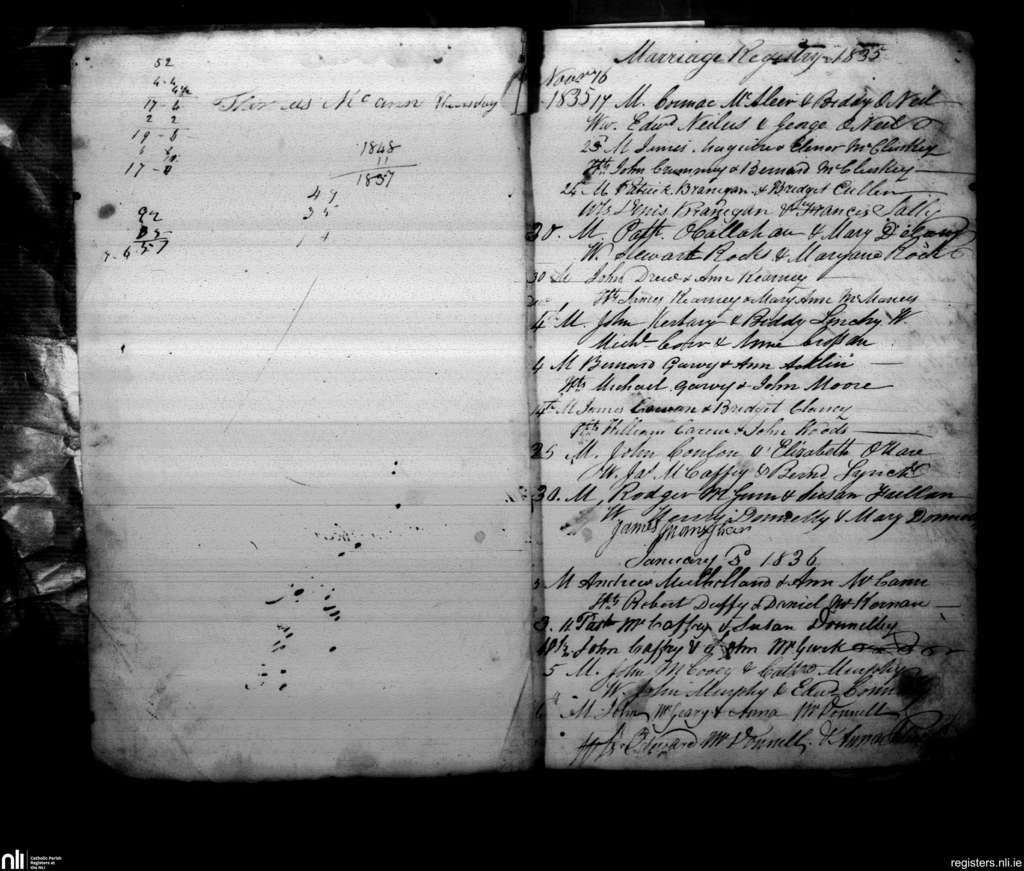 52
17 - 6
2 2
19 - 8
17 - 0
92
85
57
Thomas McCann Thursday
1848
11
1837
49
35
Marriage Registry 1835
Novr 16
1835 17 M. Cormac McAleer & Biddy O Neil
Ws. Edwd Neilus & George O Neil
25 M James Maguire & Elenor McCluskey
Wts John Crummey & Bernard McCluskey
25 M Patrick Branegan & Bridget Cullen
Wts Denis Branegan & Francis Lally
30. M. Patt. O Callahan & Mary
W. Stewart Rocks & Maryane Rock
30 M John Drew & Ann Kearney
Wts James Kearney & Mary Ann McManey
4th M. John & Biddy Lynchy W.
Michl & Anne Crossan
4 M Bernard Garvy & Ann
Wts Michael Garvy & John Moore
14th M James Cowan & Bridget Clancy
Wts William Carew & John Woods
25 M. John Conlon & Elizabeth O Hare
W. Jas McCaffry & Bernd Lynch
30. M, Rodger & Susan
W Henry Donnelly & Mary
James Monaghan
January 1836
3 M Andrew Mulholland & Ann McCann
Wts Robert Duffy & Daniel McKernan
3. Patk McCaffrey & Susan Donnelly
John Caffry & John McGurk
5 M. John McCooey & Cathe Murphy
W. John Murphy & Edwd
6 M John McGeary & Anna McDonnell
Edward McDonnell & Anna
nli
Catholic Parish
Registers at
the NLI
registers.nli.ie